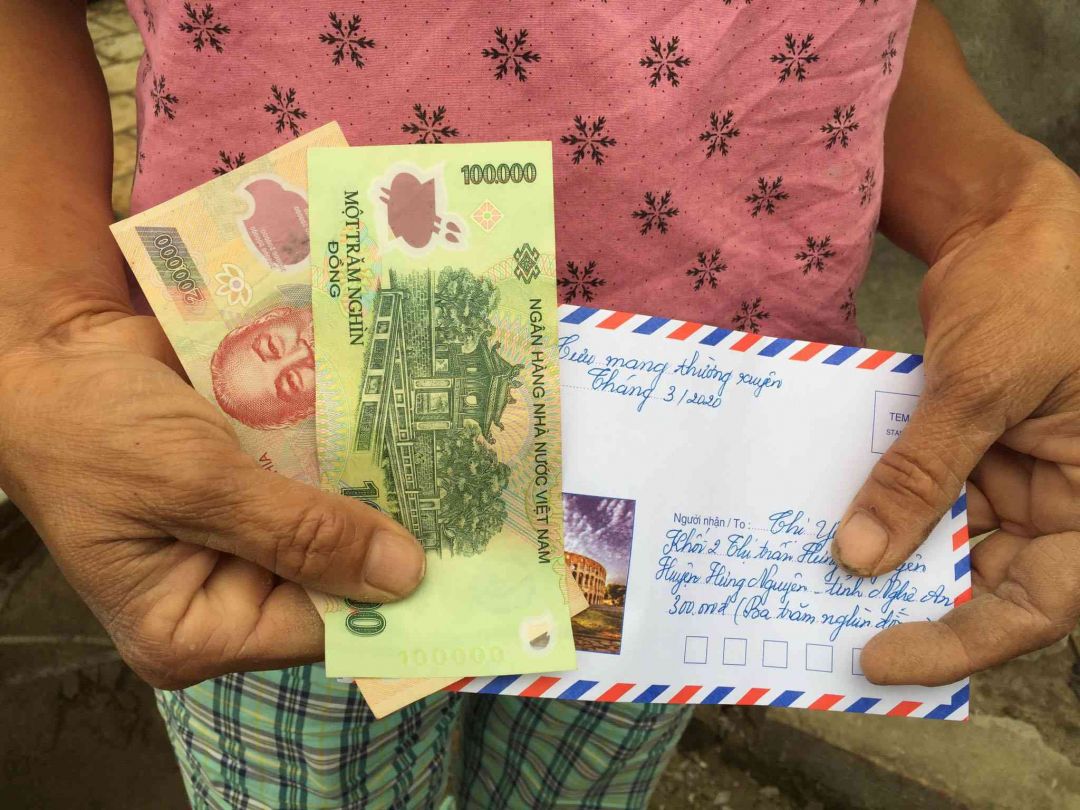 200.000
100.000
MỘT TRĂM NGHÌN
ĐỒNG
NGÂN HÀNG NHÀ NƯỚC VIỆT NAM
100000
mang thường xuyên
Tháng 3/2020
TEM
STA
Người nhận / To : Chị
Khối 2 Thị trấn Hưng
Huyện Hưng Nguyên - tỉnh Nghệ An
300.000đ (Ba trăm nghìn